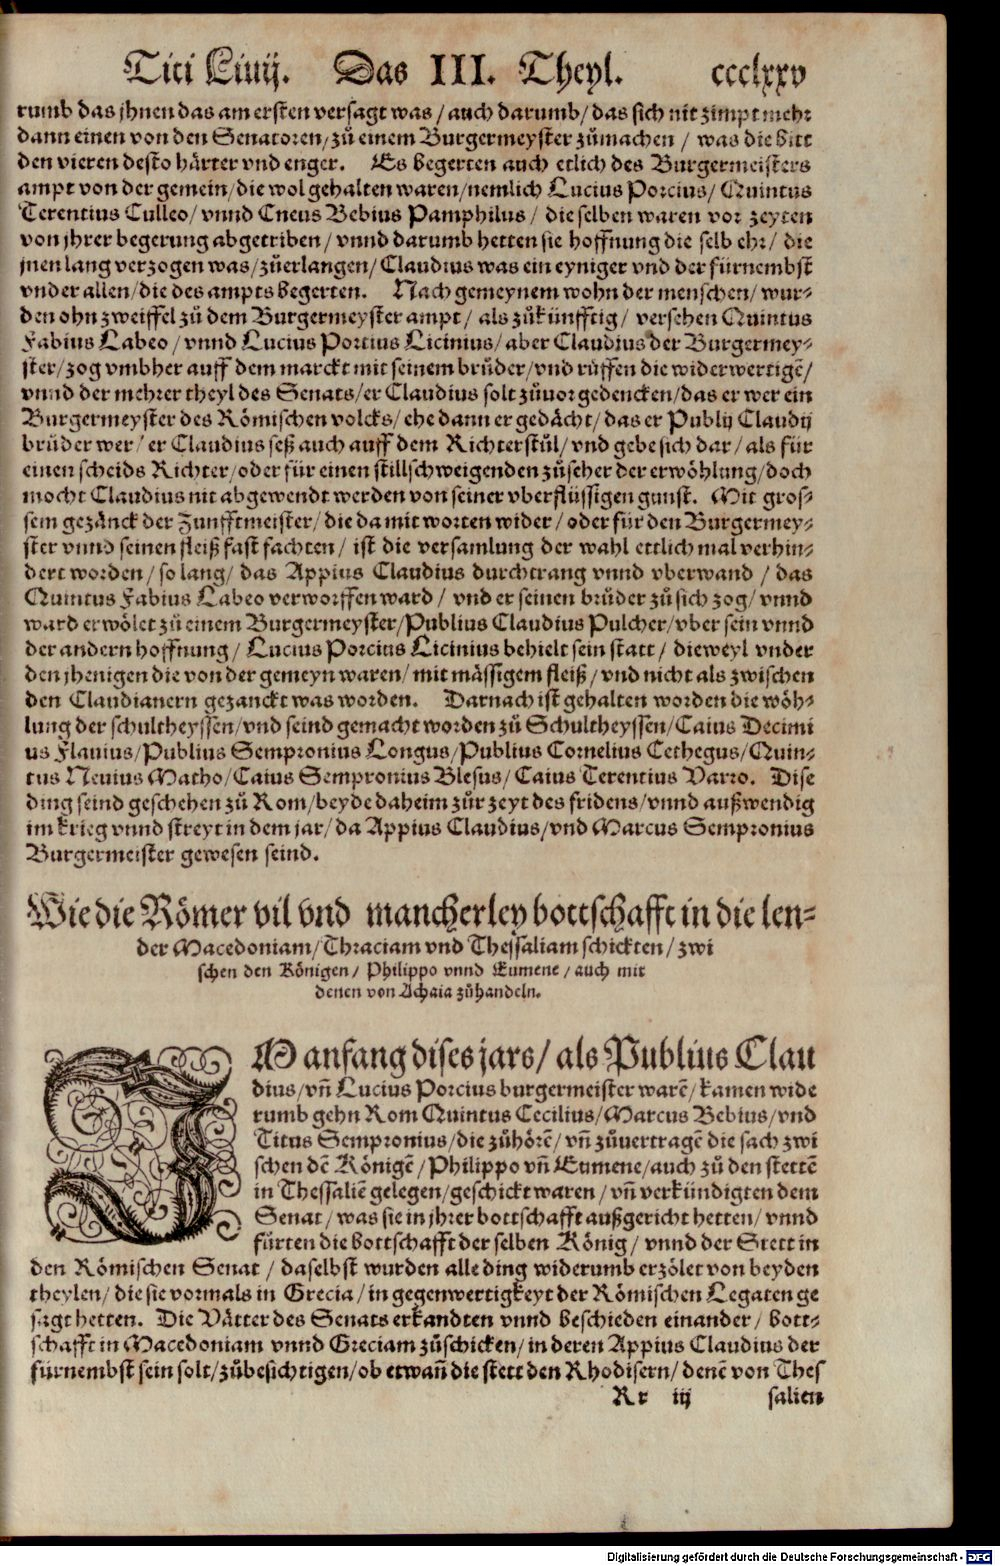 Titi Liuij. Das III. Theyl. ccclxxv
rumb das jhnen das am ersten versagt was / auch darumb / das sich nit zimpt mehr
dann einen von den Senatoren / zů einem Burgermeyster zůmachen / was die bitt
den vieren desto härter vnd enger. Es begerten auch etlich des Burgermeisters
ampt von der gemein / die wol gehalten waren / nemlich Lucius Porcius / Quintus
Terentius Culleo / vnnd Cneus Bebius Pamphilus / die selben waren vor zeyten
von jhrer begerung abgetriben / vnnd darumb hetten sie hoffnung die selb ehr / die
jnen lang verzogen was / zůerlangen / Claudius was ein eyniger vnd der fürnembst
vnder allen / die des ampts begerten. Nach gemeynem wohn der menschen / wur-
den ohn zweiffel zů dem Burgermeyster ampt / als zůkünfftig / versehen Quintus
Fabius Labeo / vnnd Lucius Portius Licinius / aber Claudius der Burgermey-
ster / zog vmbher auff dem marckt mit seinem brůder / vnd růffen die widerwertigē /
vnnd der mehrer theyl des Senats / er Claudius solt zůuor gedencken / das er wer ein
Burgermeyster des Römischen volcks / ehe dann er gedächt / das er Publij Claudij
brůder wer / er Claudius seß auch auff dem Richterstůl / vnd gebe sich dar / als für
einen scheids Richter / oder für einen stillschweigenden zůseher der erwöhlung / doch
mocht Claudius nit abgewendt werden von seiner vberflüssigen gunst. Mit gros-
sem gezänck der Zunfftmeister / die da mit worten wider / oder für den Burgermey-
ster vnnd seinen fleiß fast fachten / ist die versamlung der wahl ettlich mal verhin-
dert worden / so lang / das Appius Claudius durchtrang vnnd vberwand / das
Quintus Fabius Labeo verworffen ward / vnd er seinen brůder zů sich zog / vnnd
ward erwölet zů einem Burgermeyster / Publius Claudius Pulcher / vber sein vnnd
der andern hoffnung / Lucius Porcius Licinius behielt sein statt / dieweyl vnder
den jhenigen die von der gemeyn waren / mit mässigem fleiß / vnd nicht als zwischen
den Claudianern gezanckt was worden. Darnach ist gehalten worden die wöh-
lung der schultheyssen / vnd seind gemacht worden zů Schultheyssen / Caius Decimi
us Flauius / Publius Sempronius Longus / Publius Cornelius Cethegus / Quin-
tus Neuius Matho / Caius Sempronius Blesus / Caius Terentius Varro. Dise
ding seind geschehen zů Rom / beyde daheim zůr zeyt des fridens / vnnd außwendig
im krieg vnnd streyt in dem jar / da Appius Claudius / vnd Marcus Sempronius
Burgermeister gewesen seind.
Wie die Römer vil vnd mancherley bottschafft in die len-
der Macedoniam / Thraciam vnd Thessaliam schickten / zwi
schen den Königen / Philippo vnnd Eumene / auch mit
denen von Achaia zůhandeln.
IM anfang dises jars / als Publius Clau
dius / vñ Lucius Porcius burgermeister warē / kamen wide
rumb gehn Rom Quintus Cecilius / Marcus Bebius / vnd
Titus Sempronius / die zůhörē / vñ zůuertragē die sach zwi
schen dē Königē / Philippo vñ Eumene / auch zů den stettē
in Thessaliē gelegen / geschickt waren / vñ verkündigten dem
Senat / was sie in jhrer bottschafft außgericht hetten / vnnd
fürten die bottschafft der selben König / vnnd der Stett in
den Römischen Senat / daselbst wurden alle ding widerumb erzölet von beyden
theylen / die sie vormals in Grecia / in gegenwertigkeyt der Römischen Legaten ge
sagt hetten. Die Vätter des Senats erkandten vnnd beschieden einander / bott-
schafft in Macedoniam vnnd Greciam zůschicken / in deren Appius Claudius der
fürnembst sein solt / zůbesichtigen / ob etwañ die stett den Rhodisern / denē von Thes
Rr iij salien
Digitalisierung gefördert durch die Deutsche Forschungsgemeinschaft - DFG